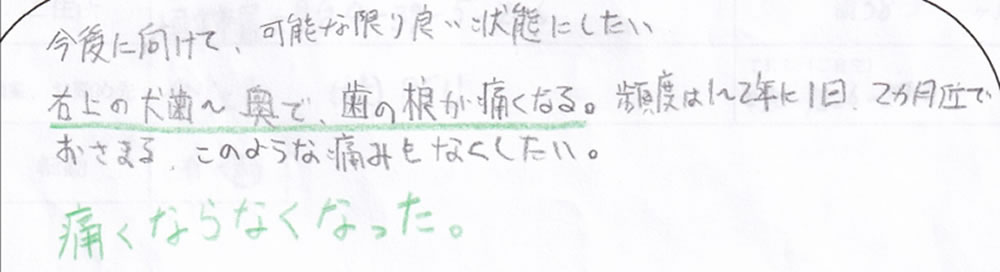 今後に向けて、可能な限り良い状態にしたい
右上の犬歯～奥で、歯の根が痛くなる。頻度は1～2年に1回 2カ月位で
おさまる、このような痛みをなくしたい。
痛くならなくなった。